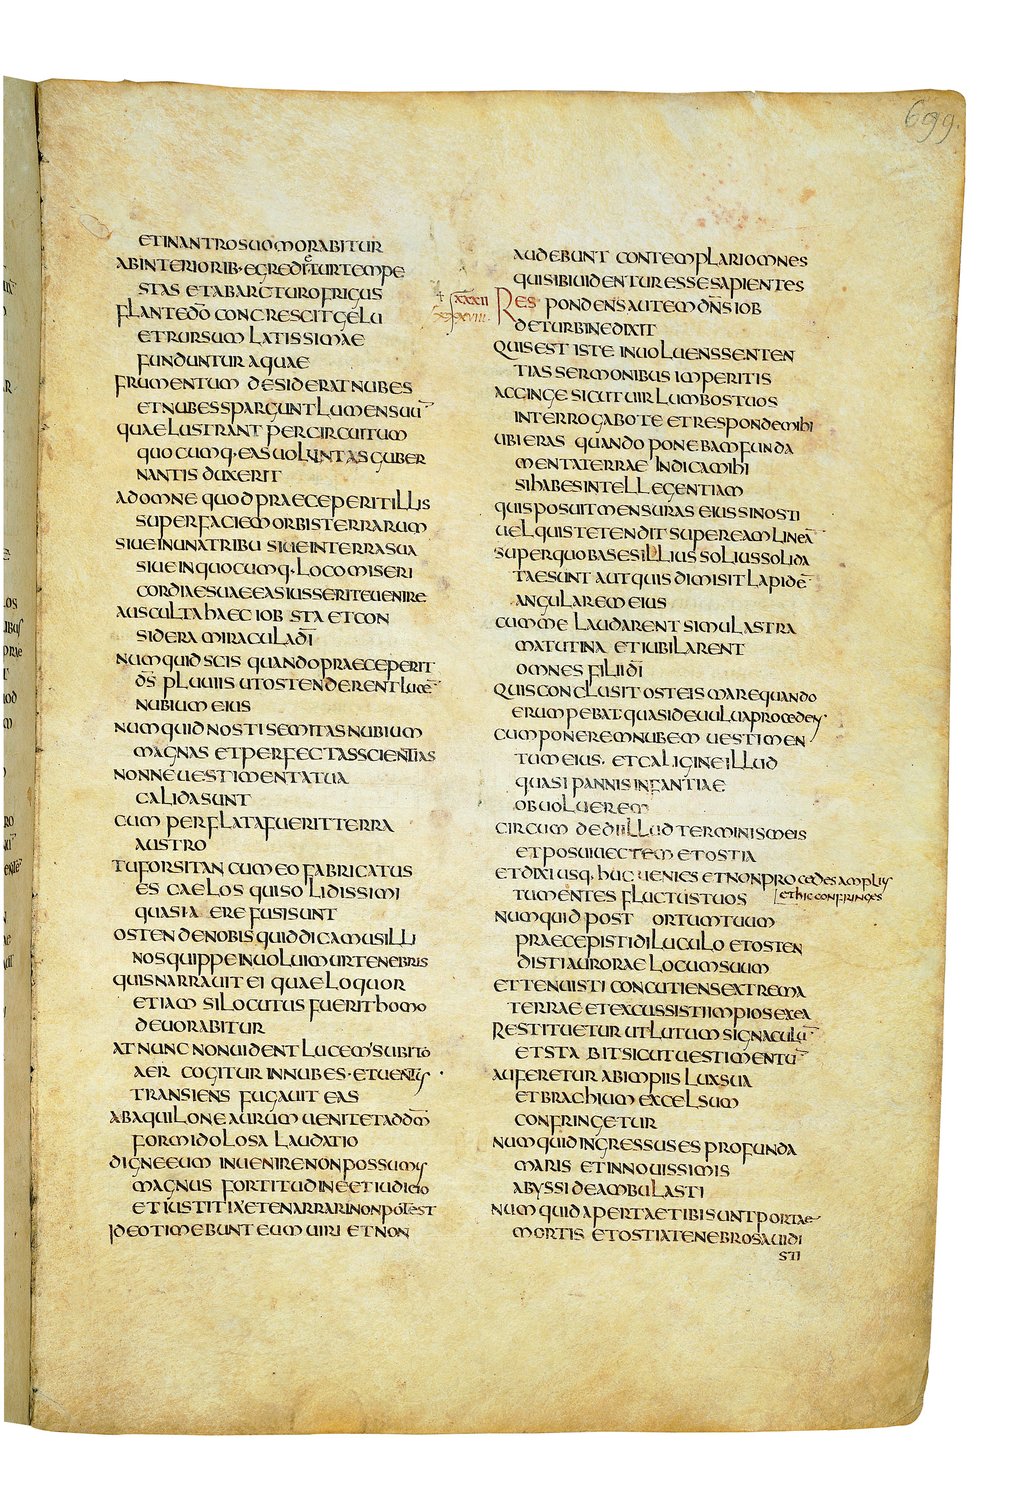 699.
ET IN ANTRO SUO MORABITUR
AB INTERIORIB· EGREDIETUR TEMPE
STAS ET AB ARCTURO FRIGUS
FLANTE DŌ CONCRESCIT GELU
ET RURSUM LATISSIMAE
FUNDUNTUR AQUAE
FRUMENTUM DESIDERAT NUBES
ET NUBES SPARGUNT LUMEN SUŪ
QUAE LUSTRANT PER CIRCUITUM
QUOCUMQ· EAS UOLUNTAS GUBER
NANTIS DUXERIT
AD OMNE QUOD PRAECEPERIT ILLIS
SUPER FACIEM ORBIS TERRARUM
SIUE IN UNA TRIBU SIUE IN TERRA SUA
SIUE IN QUOCUMQ· LOCO MISERI
CORDIAE SUAE EAS IUSSERIT EUENIRE
AUSCULTA HAEC IOB STA ET CON
SIDERA MIRACULA DĪ
NUMQUID SCIS QUANDO PRAECEPERIT
DS̄ PLUUIIS UT OSTENDERENT LUCĒ
NUBIUM EIUS
NUMQUID NOSTI SEMITAS NUBIUM
MAGNAS ET PERFECTAS SCIENTIAS
NONNE UESTIMENTA TUA
CALIDA SUNT
CUM PERFLATA FUERIT TERRA
AUSTRO
TU FORSITAN CUM EO FABRICATUS
ES CAELOS QUI SOLIDISSIMI
QUASI AERE FUSI SUNT
OSTENDE NOBIS QUID DICAMUS ILLI
NOS QUIPPE INUOLUIMUR TENEBRIS
QUIS NARRAUIT EI QUAE LOQUOR
ETIAM SI LOCUTUS FUERIT HOMO
DEUORABITUR
AT NUNC NON UIDENT LUCEM SUBITO
AER COGITUR IN NUBES· ET UENTUS
TRANSIENS FUGAUIT EAS
AB AQUILONE AURUM UENIT ET AD DM̄
FORMIDOLOSA LAUDATIO
DIGNE EUM INUENIRE NON POSSUMUS
MAGNUS FORTITUDINE ET IUDICIO
ET IUSTITIA ET ENARRARI NON POTEST
IDEO TIMEBUNT EUM UIRI ET NON
AUDEBUNT CONTEMPLARI OMNES
QUI SIBI UIDENTUR ESSE SAPIENTES
XXXII RESPONDENS AUTEM DN̄S IOB
DE TURBINE DIXIT
QUIS EST ISTE INUOLUENS SENTEN
TIAS SERMONIBUS IMPERITIS
ACCINGE SICUT UIR LUMBOS TUOS
INTERROGABO TE ET RESPONDE MIHI
UBI ERAS QUANDO PONEBAM FUNDA
MENTA TERRAE INDICA MIHI
SI HABES INTELLEGENTIAM
QUIS POSUIT MENSURAS EIUS SI NOSTI
UEL QUIS TETENDIT SUPER EAM LINEĀ
SUPER QUO BASES ILLIUS SOLIUS SOLIDA
TAE SUNT AUT QUIS DIMISIT LAPIDĒ
ANGULAREM EIUS
CUM ME LAUDARENT SIMUL ASTRA
MATUTINA ET IUBILARENT
OMNES FILII DĪ
QUIS CONCLUSIT OSTEIS MARE QUANDO
ERUMPEBAT QUASI DE UULUA PROCEDENS
CUM PONEREM NUBEM UESTIMEN
TUM EIUS· ET CALIGINE ILLUD
QUASI PANNIS INFANTIAE
OBUOLUEREM
CIRCUMDEDI ILLUD TERMINIS MEIS
ET POSUI UECTEM ET OSTIA
ET DIXI USQ· HUC UENIES ET NON PROCEDES AMPLIUS
TUMENTES FLUCTUS TUOS ET HIC CONFRINGES
NUMQUID POST ORTUM TUUM
PRAECEPISTI DILUCULO ET OSTEN
DISTI AURORAE LOCUM SUUM
ET TENUISTI CONCUTIENS EXTREMA
TERRAE ET EXCUSSISTI IMPIOS EX EA
RESTITUETUR UT LUTUM SIGNACULŪ
ET STABIT SICUT UESTIMENTŪ
AUFERETUR AB IMPIIS LUX SUA
ET BRACHIUM EXCELSUM
CONFRINGETUR
NUMQUID INGRESSUS ES PROFUNDA
MARIS ET IN NOUISSIMIS
ABYSSI DEAMBULASTI
NUMQUID APERTAE TIBI SUNT PORTAE
MORTIS ET OSTIA TENEBROSA UIDI
STI